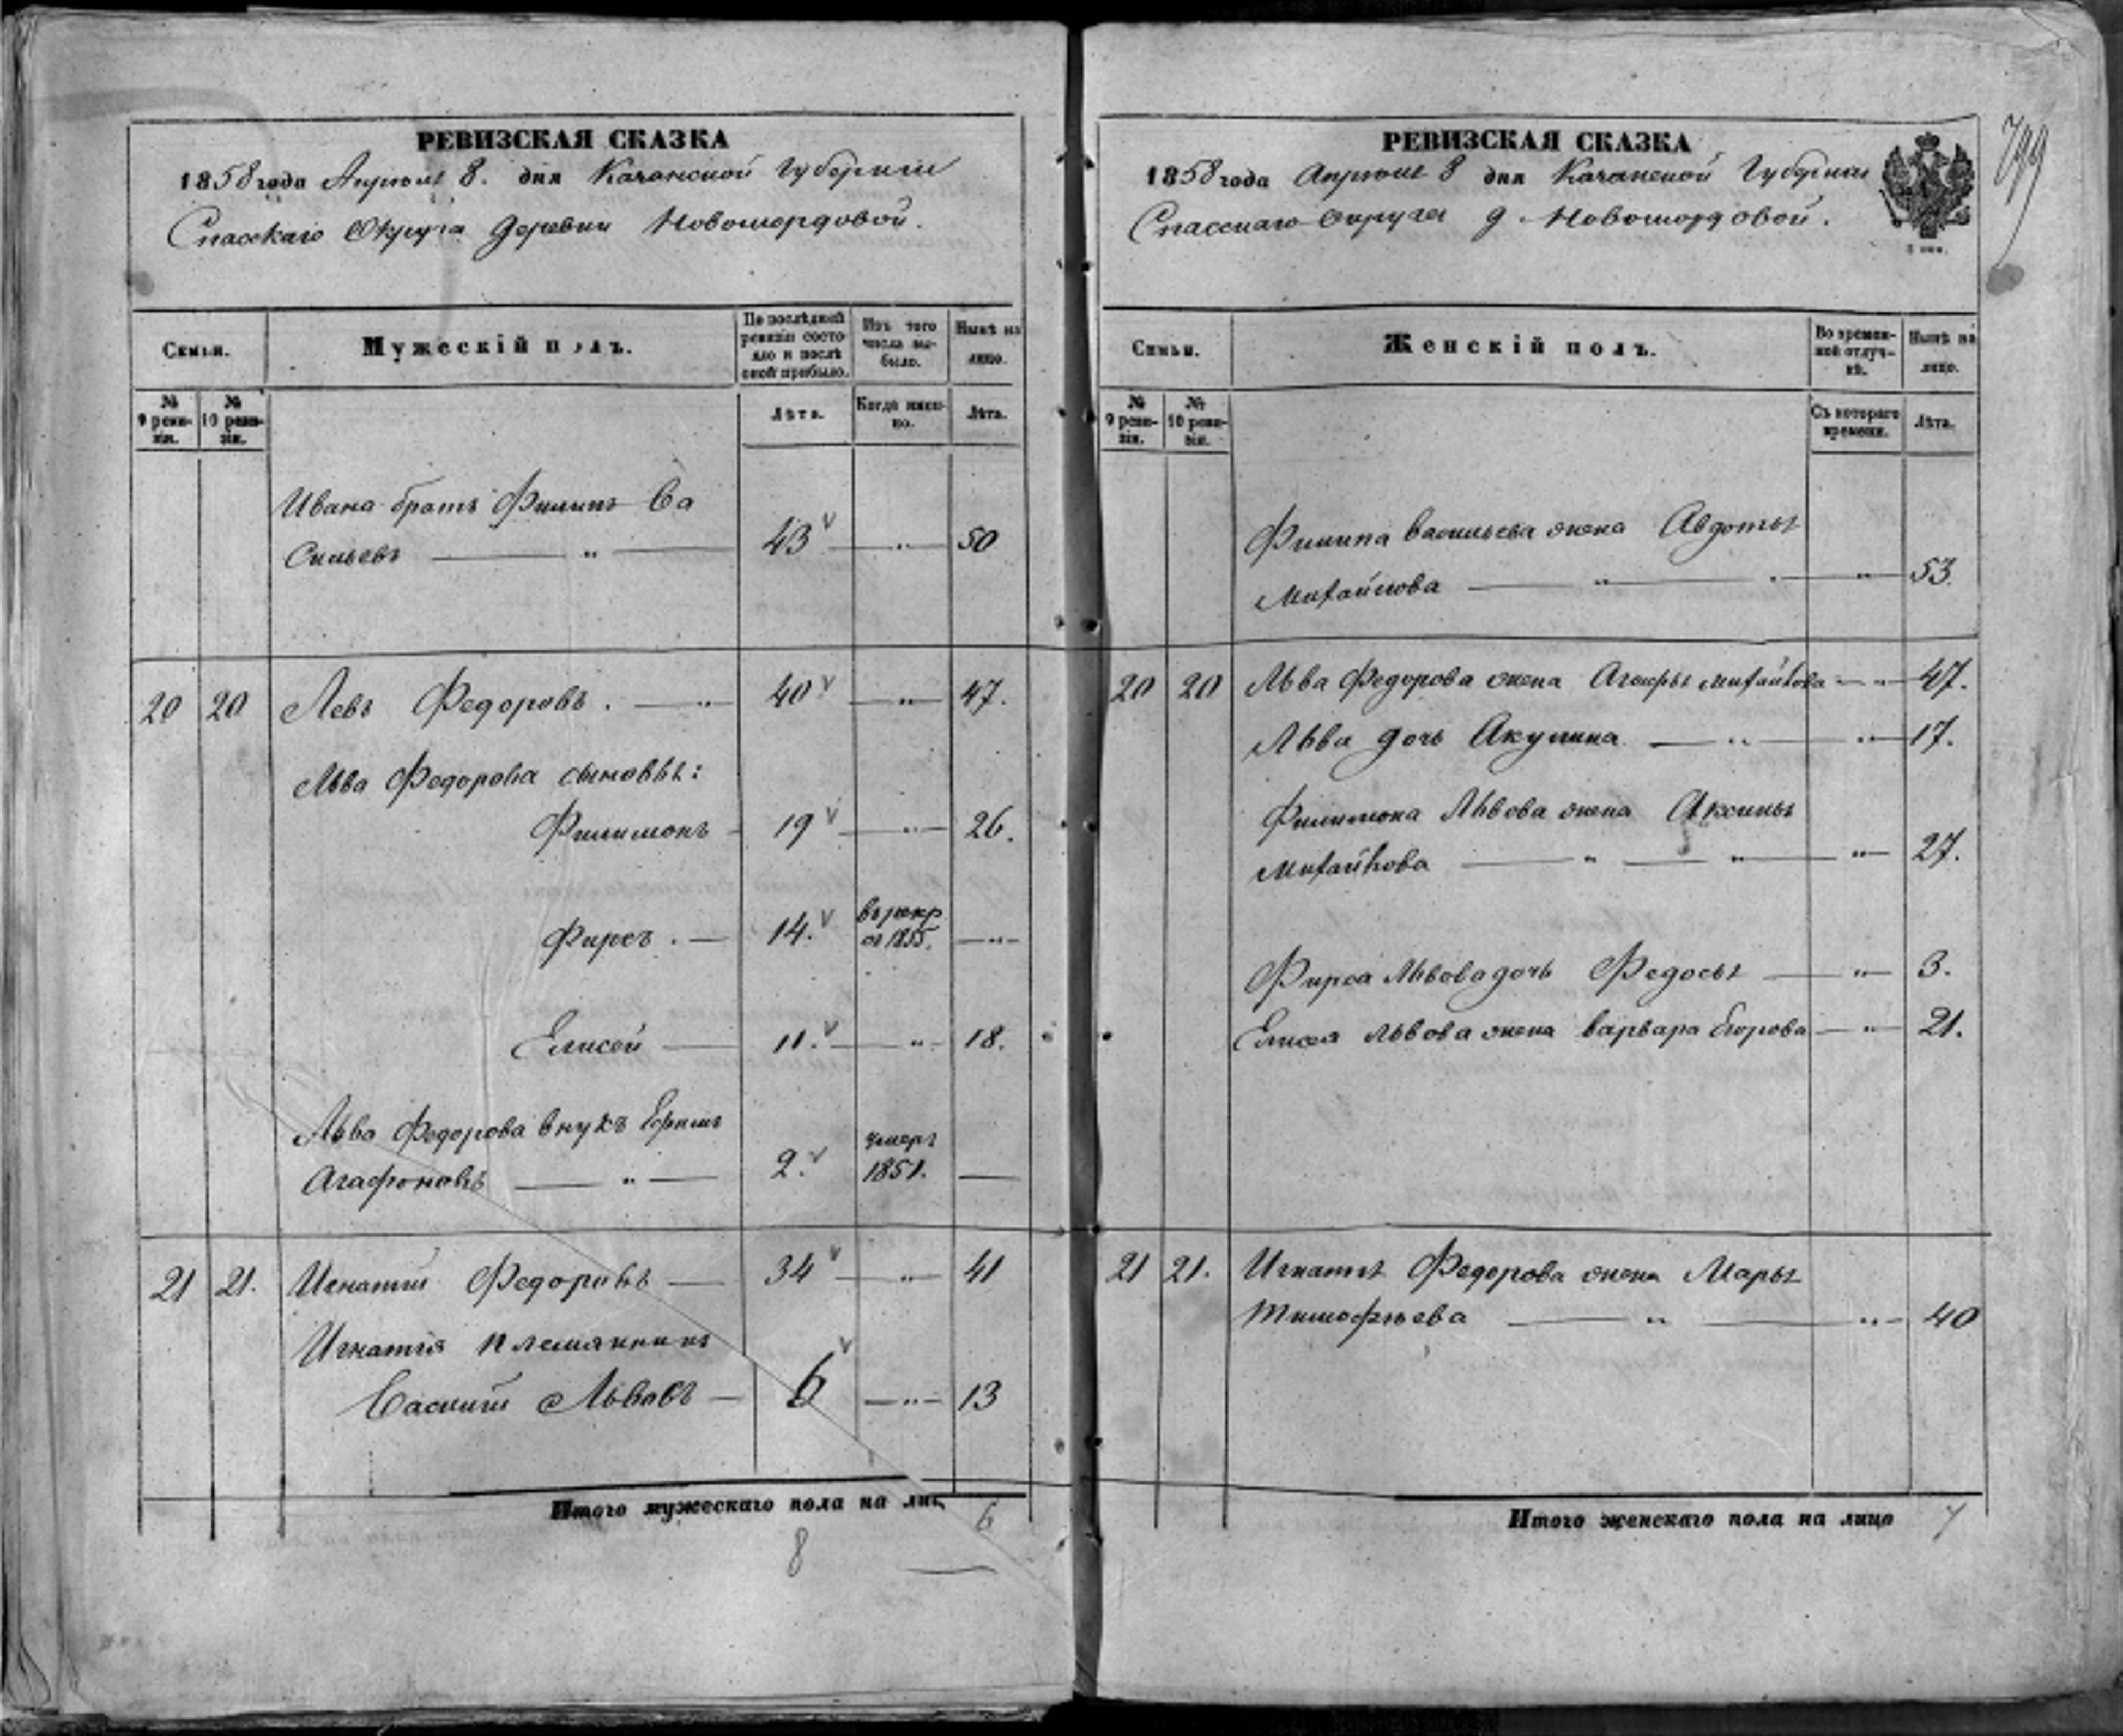 РЕВИЗСКАЯ СКАЗКА
1858 года Апреля 8. дня Казанской Губернии
Спасскаго Округа деревни Новомордовой.
Семьи.
Мужескій полъ.
По послѣдней ревизіи состояло и послѣ оной прибыло.
Изъ того числа выбыло.
Нынѣ на лицо.
№ 9 ревизіи.
№ 10 ревизіи.
Лѣта.
Когда именно.
Лѣта.
Ивана братъ Филипъ Ва
сильевъ — „ — 43 — „ — 50
20 20 Левъ Федоровъ. — „ 40 — „ — 47.
Льва Федорова сыновья:
Филимонъ - 19 — „ — 26.
Фирсъ . — 14. въ рекр 1855. — „ -
Елисей — 11. — „ - 18.
Льва Федорова внукъ Ефимъ
Агафоновъ — „ — 2. умеръ 1851. —
21 21. Игнатій Федоровъ — 34 — „ — 41
Игнатія племянникъ
Василій Львовъ — 6 — „ — 13
Итого мужескаго пола на лиц 6
8
РЕВИЗСКАЯ СКАЗКА
1858 года Апреля 8 дня Казанской Губернии
Спасскаго Округа д. Новомордовой.
799
Семьи.
Женскій полъ.
Во временной отлучкѣ.
Нынѣ на лицо.
№ 9 ревизіи.
№ 10 ревизіи.
Съ котораго времени.
Лѣта.
Филипа Васильева жена Авдотья
Михайлова — „ — „ — 53.
20 20 Льва Федорова жена Агафья Михайлова — „ — 47.
Льва дочь Акулина. — „ — „ — 17.
Филимона Львова жена Аксинья
Михайлова — „ — „ — „ — 27.
Фирса Львова дочь Федосья — „ — 3.
Елисея Львова жена Варвара Егорова — „ — 21.
21 21. Игнатія Федорова жена Марья
Тимофѣева — „ — „ - 40
Итого женскаго пола на лицо 7